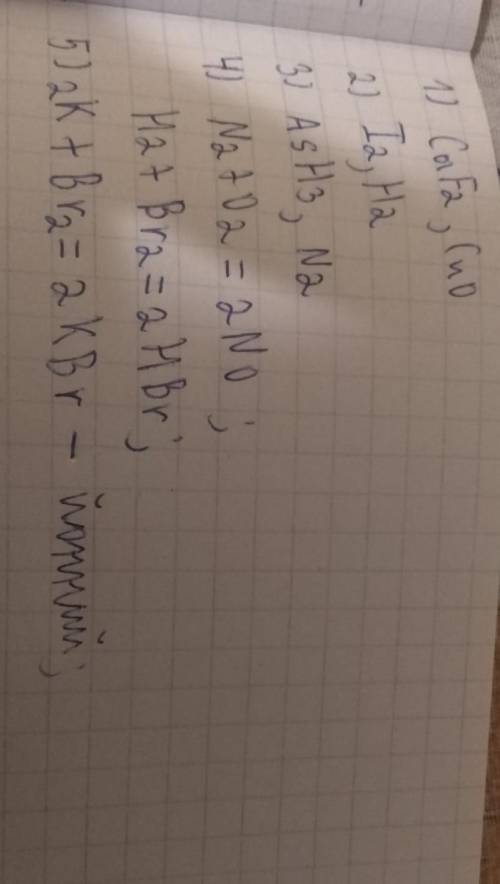 1) CaF2, CuO
2) I2, H2
3) AsH3, N2
4) N2+O2=2NO;
H2+Br2=2HBr;
5) 2K+Br2=2KBr - йонний;